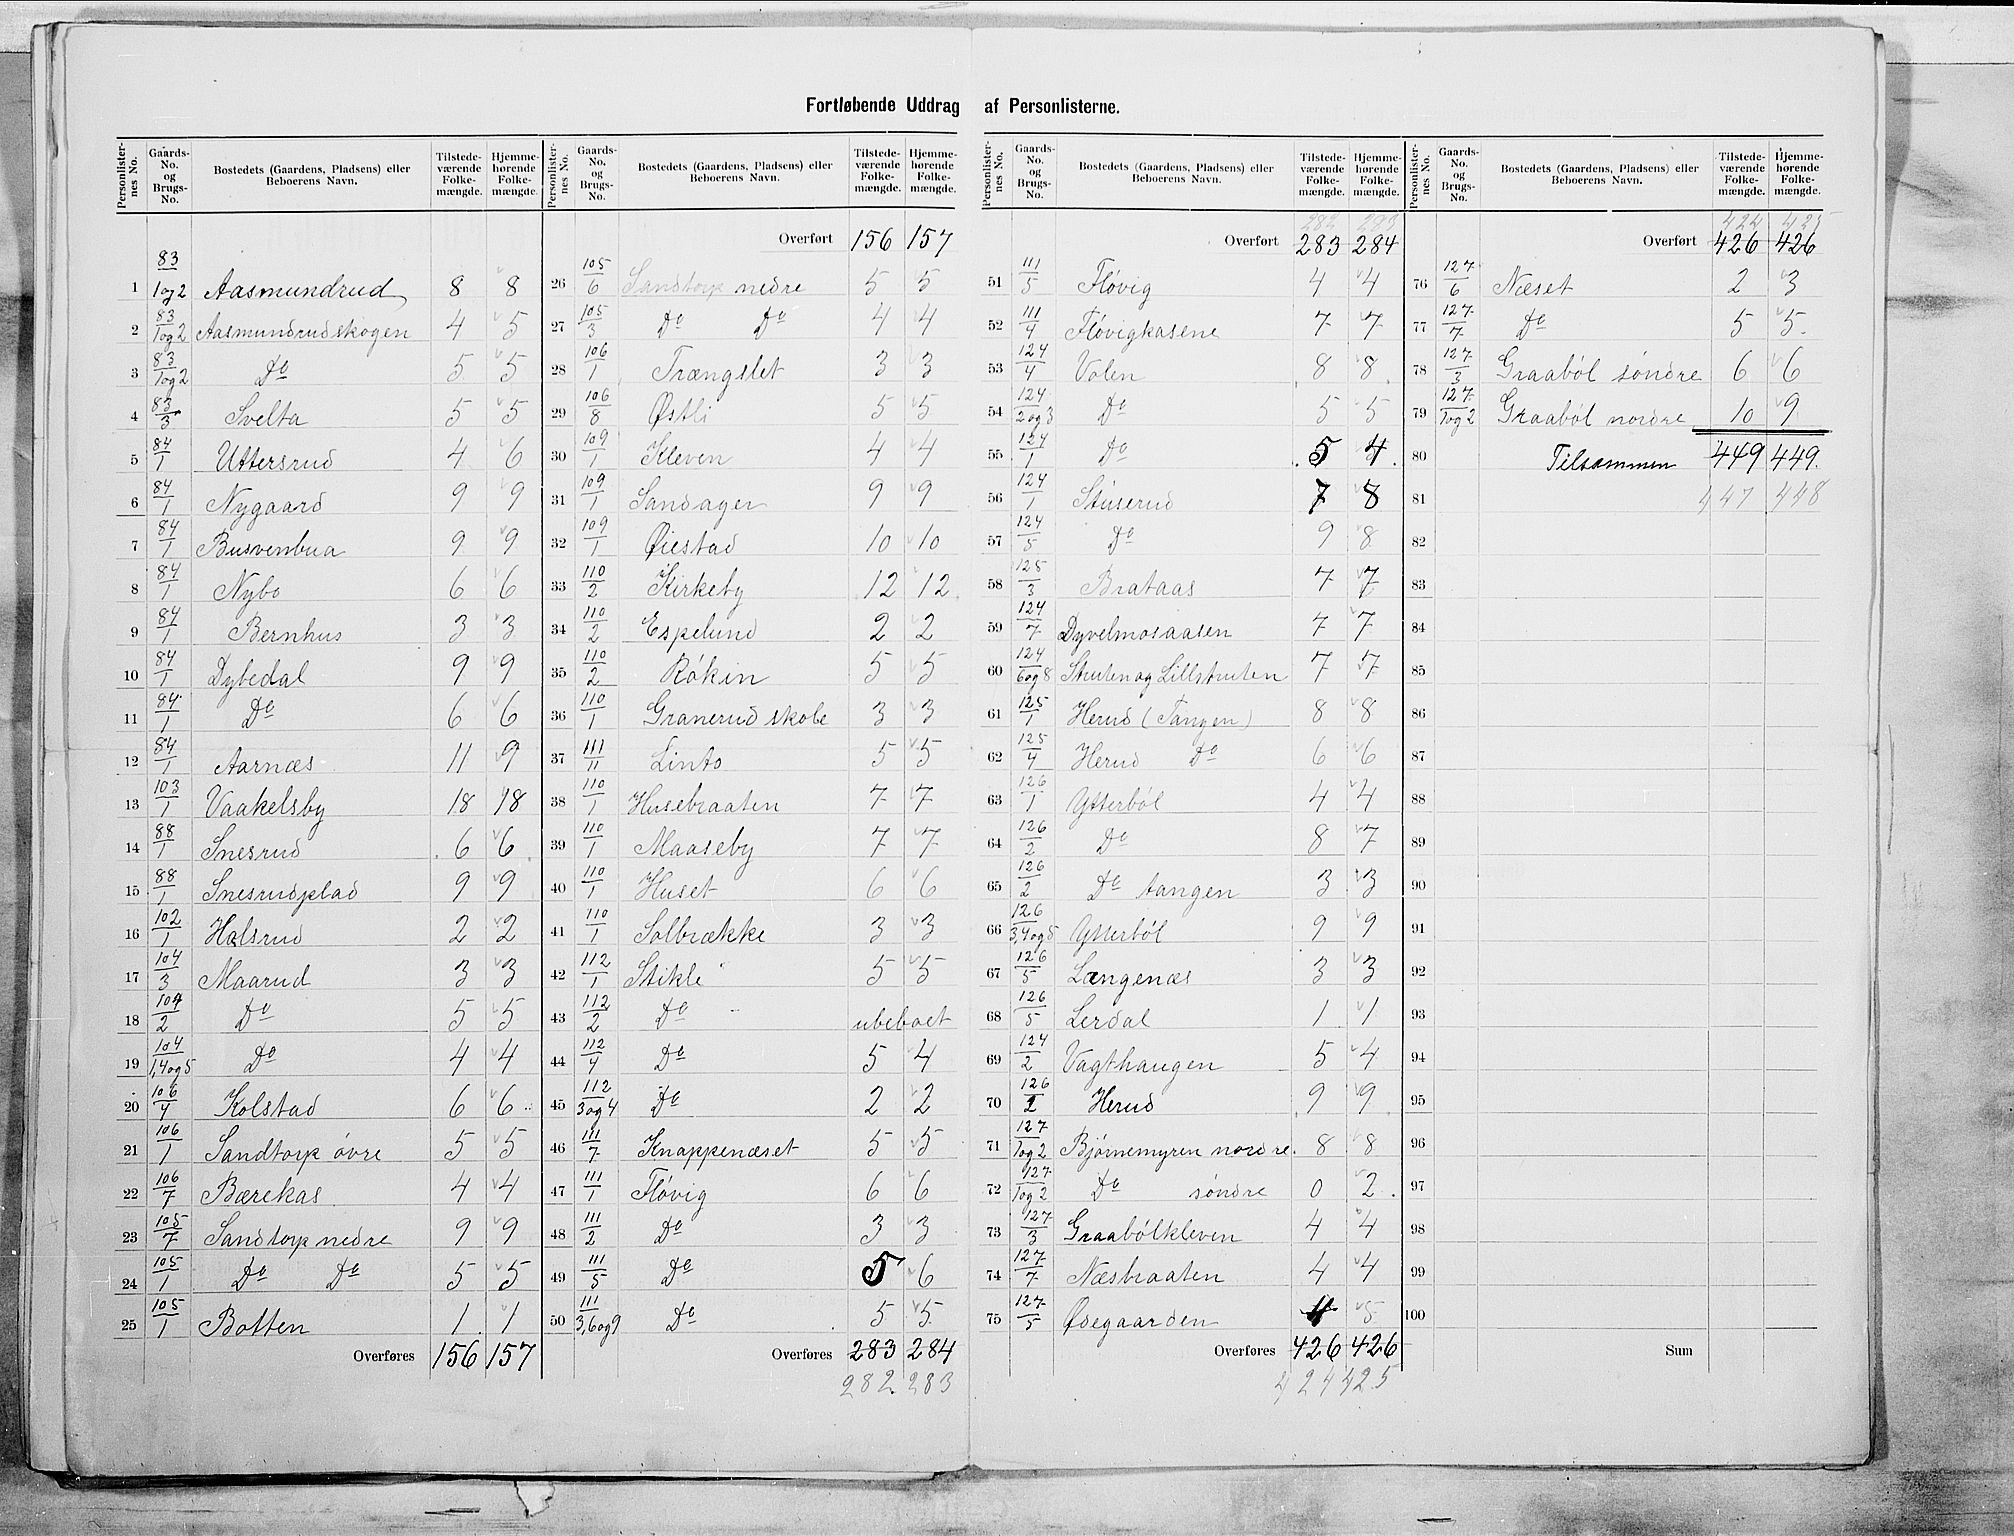 Fortløbende Uddrag af Personlisterne.
Personlisternes No. | Gaards-No. og Brugs-No. | Bostedets (Gaardens, Pladsens) eller Beboerens Navn. | Tilstedeværende Folkemængde. | Hjemmehørende Folkemængde.
1 83/1og2 Aasmundrud 8 8
2 83/1og2 Aasmundrudskogen 4 5
3 83/1og2 Do 5 5
4 83/3 Svelta 5 5
5 84/1 Uttersrud 4 6
6 84/1 Nygaard 9 9
7 84/1 Busvenbua 9 9
8 84/1 Nybo 6 6
9 84/1 Bernhus 3 3
10 84/1 Dybedal 9 9
11 84/1 Do 6 6
12 84/1 Aarnæs 11 9
13 103/1 Vaakelsby 18 18
14 88/1 Snesrud 6 6
15 88/1 Snesrudplad 9 9
16 102/1 Halsrud 2 2
17 104/3 Maarud 3 3
18 104/2 Do 5 5
19 104/1,4og5 Do 4 4
20 106/4 Kolstad 6 6
21 106/1 Sandtorp övre 5 5
22 106/7 Bærekas 4 4
23 105/7 Sandtorp nedre 9 9
24 105/1 Do Do 5 5
25 105/1 Botten 1 1
Overføres 156 157
Personlisternes No. | Gaards-No. og Brugs-No. | Bostedets (Gaardens, Pladsens) eller Beboerens Navn. | Tilstedeværende Folkemængde. | Hjemmehørende Folkemængde.
Overført 156 157
26 105/6 Sandtorp nedre 5 5
27 105/3 Do Do 4 4
28 106/1 Trængslet 3 3
29 106/8 Østli 5 5
30 109/1 Kleven 4 4
31 109/1 Sandager 9 9
32 109/1 Øiestad 10 10
33 110/2 Kirkeby 12 12
34 110/2 Espelund 2 2
35 110/2 Rökin 5 5
36 110/1 Granerud skole 3 3
37 111/11 Linto 5 5
38 110/1 Husebraaten 7 7
39 110/1 Maaseby 7 7
40 110/1 Huset 6 6
41 110/1 Solbrække 3 3
42 112/1 Stikle 5 5
43 112/2 Do ubeboet
44 112/4 Do 5 4
45 112/3og4 Do 2 2
46 111/7 Knappenæset 5 5
47 111/1 Flövig 6 6
48 111/2 Do 3 3
49 111/5 Do 5 6
50 111/3,6og9 Do 5 5
Overføres 283 284
282 283
Personlisternes No. | Gaards-No. og Brugs-No. | Bostedets (Gaardens, Pladsens) eller Beboerens Navn. | Tilstedeværende Folkemængde. | Hjemmehørende Folkemængde.
Overført 283 284
51 111/5 Flövig 4 4
52 111/4 Flövigkasene 7 7
53 124/4 Volen 8 8
54 124/2og3 Do 5 5
55 124/1 Do 5 4
56 124/1 Stuserud 7 8
57 124/5 Do 9 8
58 125/3 Brataas 7 7
59 124/7 Dyvelmosaasen 7 7
60 124/6og8 Struten og Lillstruten 7 7
61 125/1 Herud (Tangen) 8 8
62 125/4 Herud Do 6 6
63 126/1 Ytterböl 4 4
64 126/2 Do 8 7
65 126/2 Do tangen 3 3
66 126/3,4og5 Ytterböl 9 9
67 126/5 Længenæs 3 3
68 126/5 Lerdal 1 1
69 124/2 Vagthaugen 5 4
70 126/2 Herud 9 9
71 127/1og2 Bjørnemyren nordre 8 8
72 127/1og2 Do söndre 0 2
73 127/3 Graabölkleven 4 4
74 127/7 Næsbraaten 4 4
75 127/5 Ødegaarden 4 5
Overføres 426 426
424 425
Personlisternes No. | Gaards-No. og Brugs-No. | Bostedets (Gaardens, Pladsens) eller Beboerens Navn. | Tilstedeværende Folkemængde. | Hjemmehørende Folkemængde.
424 425
Overført 426 426
76 127/6 Næset 2 3
77 127/7 Do 5 5
78 127/3 Graaböl söndre 6 6
79 127/1og2 Graaböl nordre 10 9
80 Tilsammen 449 449
81 447 448
82
83
84
85
86
87
88
89
90
91
92
93
94
95
96
97
98
99
100
Sum